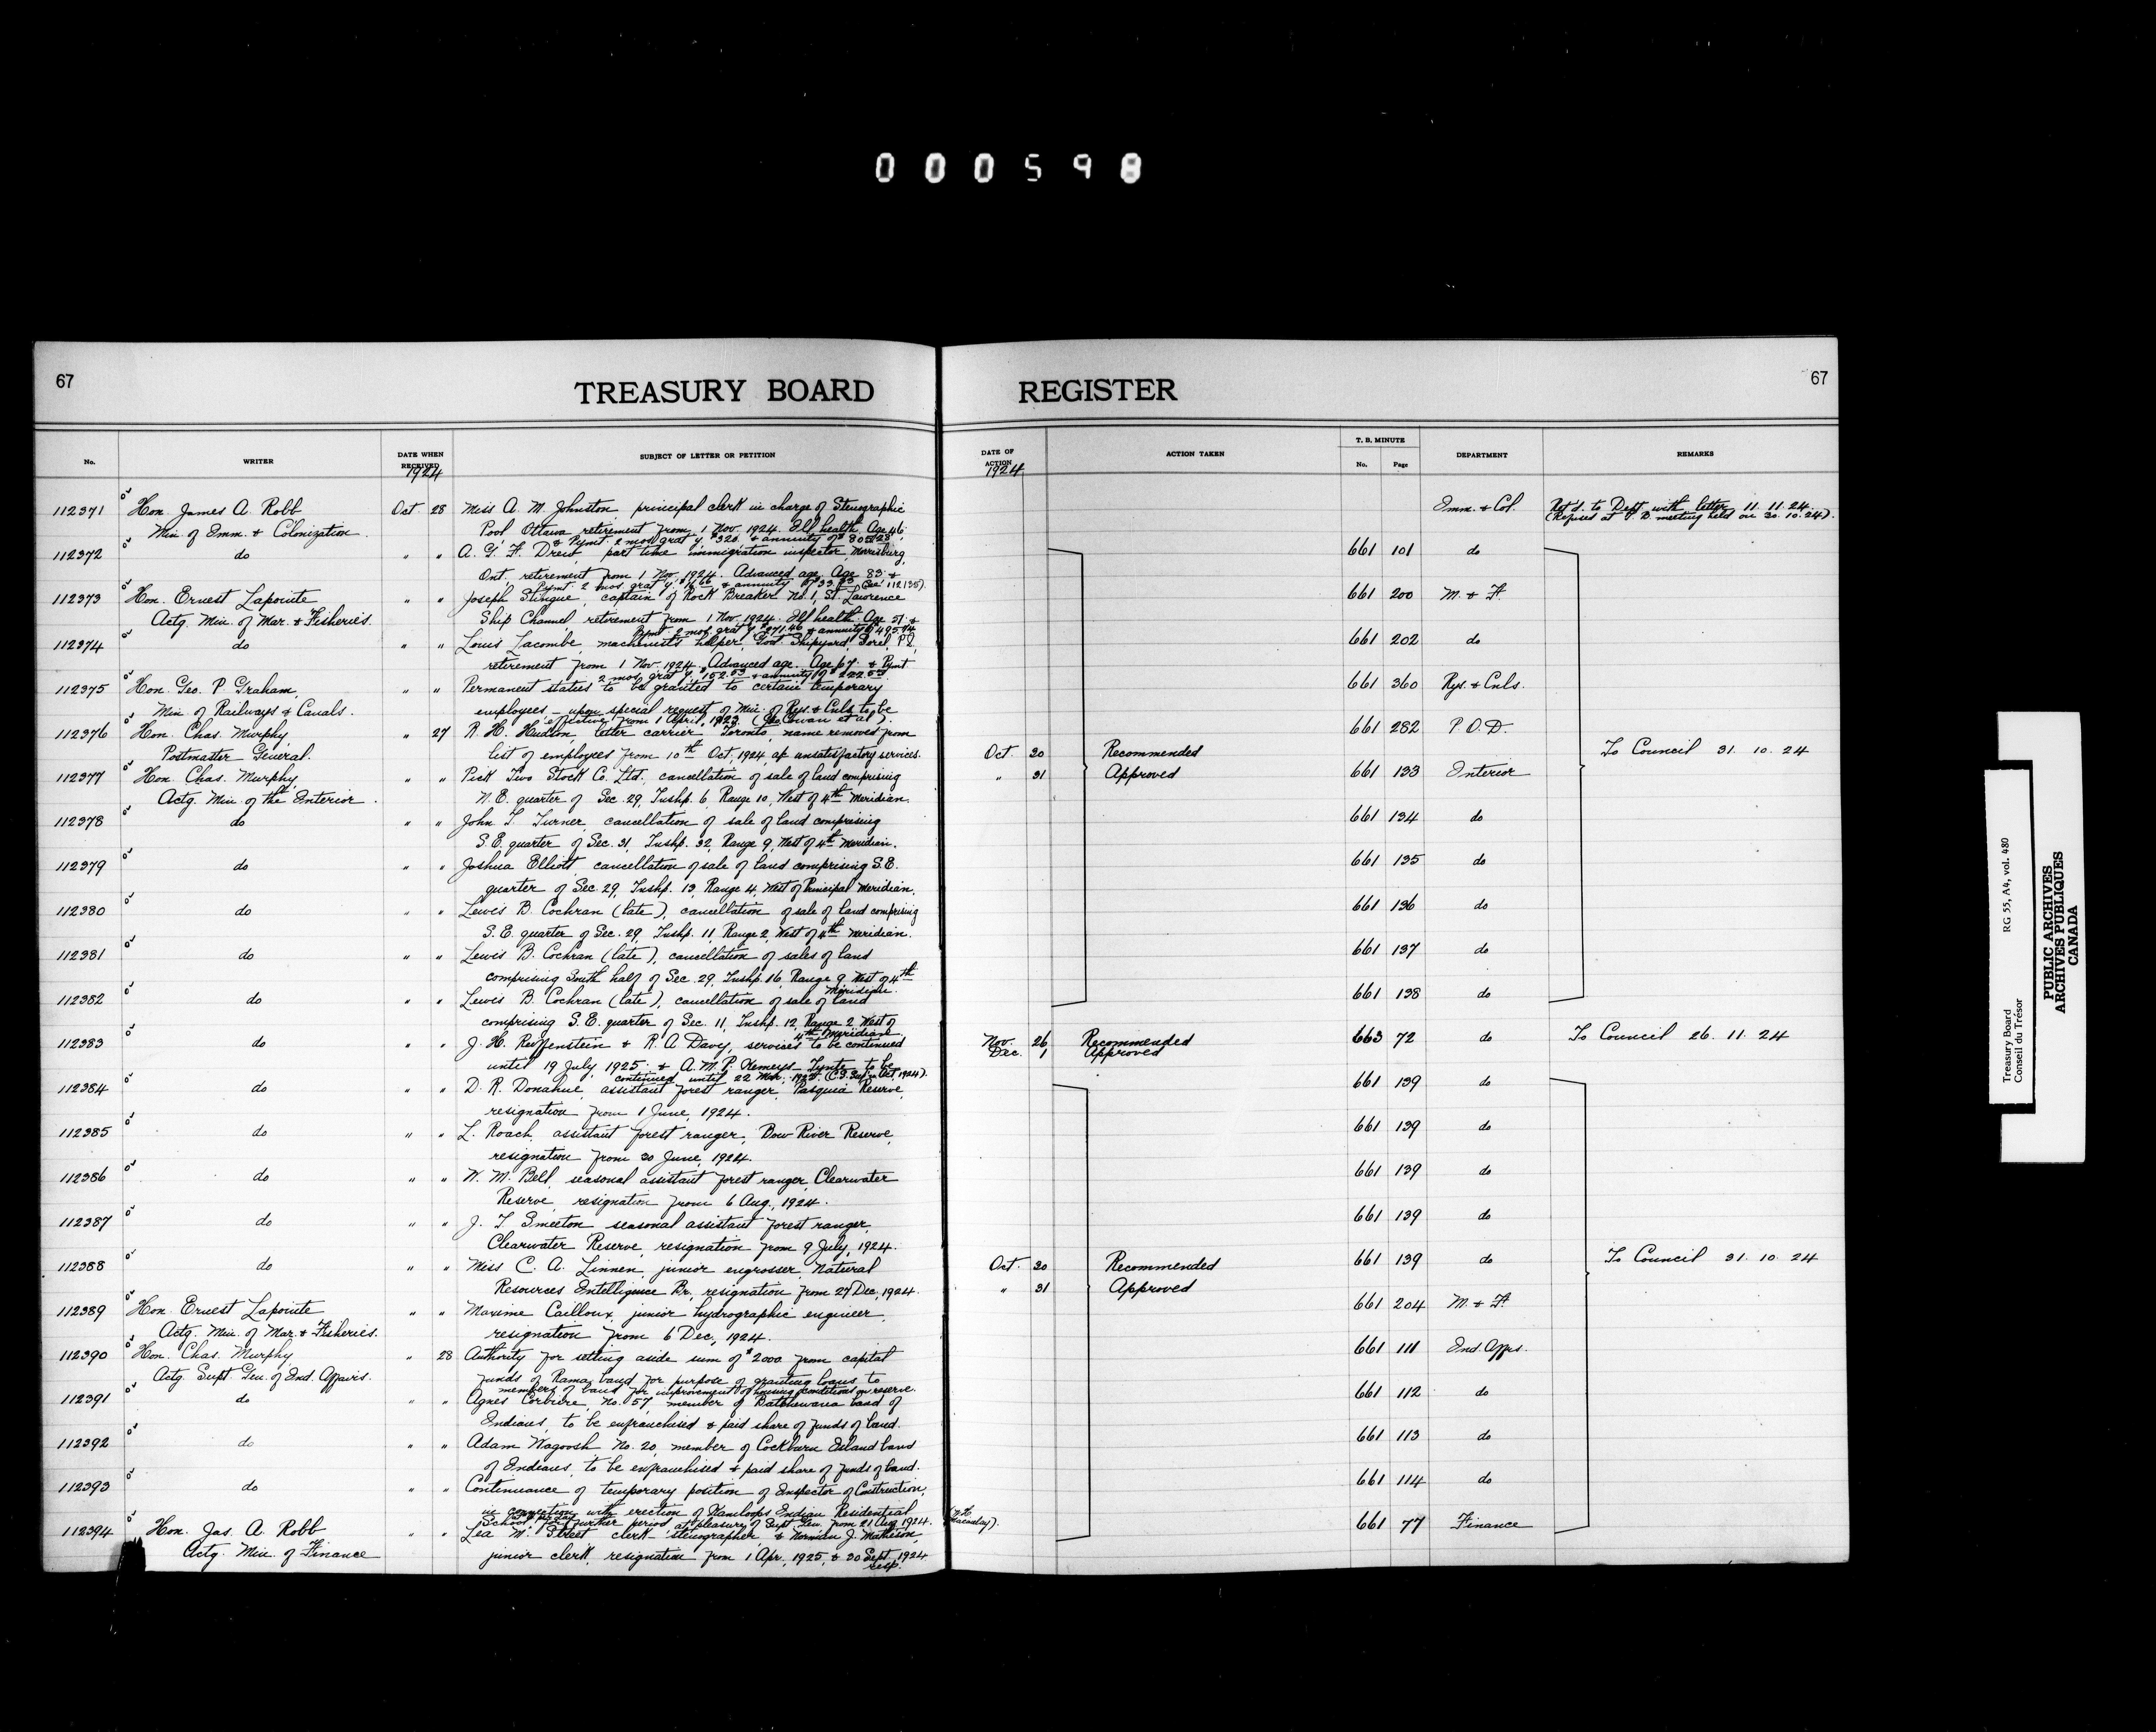 000598
67
TREASURY BOARD REGISTER
67
No. WRITER DATE WHEN RECEIVED 1924 SUBJECT OF LETTER OR PETITION DATE OF ACTION 1924 ACTION TAKEN T. B. MINUTE No. Page DEPARTMENT REMARKS
112371 Hon. James A. Robb Oct 28 Miss A. M. Johnston, principal clerk in charge of Stenographic Imm. & Col. Ret'd. to Dept. with letter 11.11.24.
Min. of Imm. & Colonization. Pool, Ottawa, retirement from 1 Nov. 1924. Ill health. Age 46. (Refused at T. B. meeting held on 30.10.24).
& Pymt. 2 mos. grat'y. $320. & annuity of $805.28.
112372 do " " A. G. F. Drew, part time immigration inspector Morrisburg, 661 101 do
Ont. retirement from 1 Nov. 1924. Advanced age. Age 83. &
Pymt. 2 mos. grat'y. $16.66 & annuity of $33.33 (See 112135).
112373 Hon. Ernest Lapointe " " Joseph captain of Rock Breaker No. 1, St Lawrence 661 200 M. & F.
Actg. Min. of Mar. & Fisheries. Ship Channel, retirement from 1 Nov. 1924. Ill health. Age 51 &
Pymt. 2 mos. grat'y & annuity
112374 do " " Louis Lacombe, machinist's helper, Govt Shipyard, Sorel, P.Q. 661 202 do
retirement from 1 Nov. 1924. Advanced age. Age 67. & Pymt
2 mos. grat'y. $152.03 & annuity of
112375 Hon. Geo. P. Graham, " " Permanent status to be granted to certain temporary 661 360 Rys. & Cnls.
Min. of Railways & Canals. employees – upon special request of Min. of Rys. & Cnls. to be
effective from 1 April, 1923. (Cowan et al).
112376 Hon. Chas. Murphy, " 27 R. H. Hudson, letter carrier Toronto, name removed from 661 282 P. O. D.
Postmaster General. list of employees from 10th Oct, 1924, a/c unsatisfactory services. Oct. 30 Recommended To Council 31.10.24
112377 Hon. Chas. Murphy, " " Pick Two Stock Co. Ltd. cancellation of sale of land comprising " 31 Approved 661 133 Interior
Actg. Min. of the Interior. N.E. quarter of Sec. 29, Tnshp. 6, Range 10, West of 4th Meridian.
112378 do " " John T. Turner, cancellation of sale of land comprising 661 134 do
S.E. quarter of Sec. 31, Tnshp. 32, Range 9, West of 4th Meridian.
112379 do " " Joshua Elliott, cancellation of sale of land comprising S.E. 661 135 do
quarter of Sec. 29, Tnshp. 13, Range 4, West of Principal Meridian.
112380 do " " Lewis B. Cochran (late), cancellation of sale of land comprising 661 136 do
S.E. quarter of Sec. 29, Tnshp. 11, Range 2, West of 4th Meridian.
112381 do " " Lewis B. Cochran (late), cancellation of sales of land 661 137 do
comprising South half of Sec. 29, Tnshp. 16, Range 9, West of 4th
Meridian.
112382 do " " Lewis B. Cochran (late), cancellation of sale of land 661 138 do
comprising S.E. quarter of Sec. 11, Tnshp. 12, Range 2, West of
4th Meridian.
112383 do " " J. H. Reiffenstein & R. A. Davy, services to be continued Nov. 26 Recommended 663 72 do To Council 26.11.24
until 19 July, 1925. & A. M. P. Kemeys-Tynte to be Dec. 1 Approved
continued until 22 Mar. 1925.
112384 do " " D. R. Donahue, assistant forest ranger, Pasquia Reserve, 661 139 do
resignation from 1 June, 1924.
112385 do " " L. Roach, assistant forest ranger, Bow River Reserve, 661 139 do
resignation from 30 June, 1924.
112386 do " " W. M. Bell, seasonal assistant forest ranger, Clearwater 661 139 do
Reserve, resignation from 6 Aug., 1924.
112387 do " " J. T. Smeeton seasonal assistant forest ranger, 661 139 do
Clearwater Reserve, resignation from 9 July, 1924.
112388 do " " Miss C. A. Linnen, junior engrosser, Natural Oct. 30 Recommended 661 139 do To Council 31.10.24
Resources Intelligence Br., resignation from 27 Dec, 1924. " 31 Approved
112389 Hon. Ernest Lapointe " " Maxime Cailloux, junior hydrographic engineer, 661 204 M. & F.
Actg. Min. of Mar. & Fisheries. resignation from 6 Dec., 1924.
112390 Hon. Chas. Murphy, " 28 Authority for setting aside sum of $2000 from capital 661 111 Ind. Affrs.
Actg. Supt. Gen. of Ind. Affairs. funds of Rama band for purpose of granting loans to
members of band for improvement of housing conditions on reserve.
112391 do " " Agnes Corbiere, No. 57, member of Batchewana band of 661 112 do
Indians, to be enfranchised & paid share of funds of band.
112392 do " " Adam Wagoosh No. 20, member of Cockburn Island band 661 113 do
of Indians, to be enfranchised & paid share of funds of band.
112393 do " " Continuance of temporary position of Inspector of Construction, 661 114 do
in connection with erection of Kamloops Indian Residential
School for further period at pleasure of Supt Gen. from 21 Aug 1924. (Macaulay).
112394 Hon. Jas. A. Robb " " Lea W. Street clerk stenographer & Norman J. Matheson, 661 77 Finance
Actg. Min. of Finance junior clerk, resignation from 1 Apr., 1925, & 30 Sept, 1924
resp.
Treasury Board RG 55, A4, vol. 480
Conseil du Trésor
PUBLIC ARCHIVES
ARCHIVES PUBLIQUES
CANADA